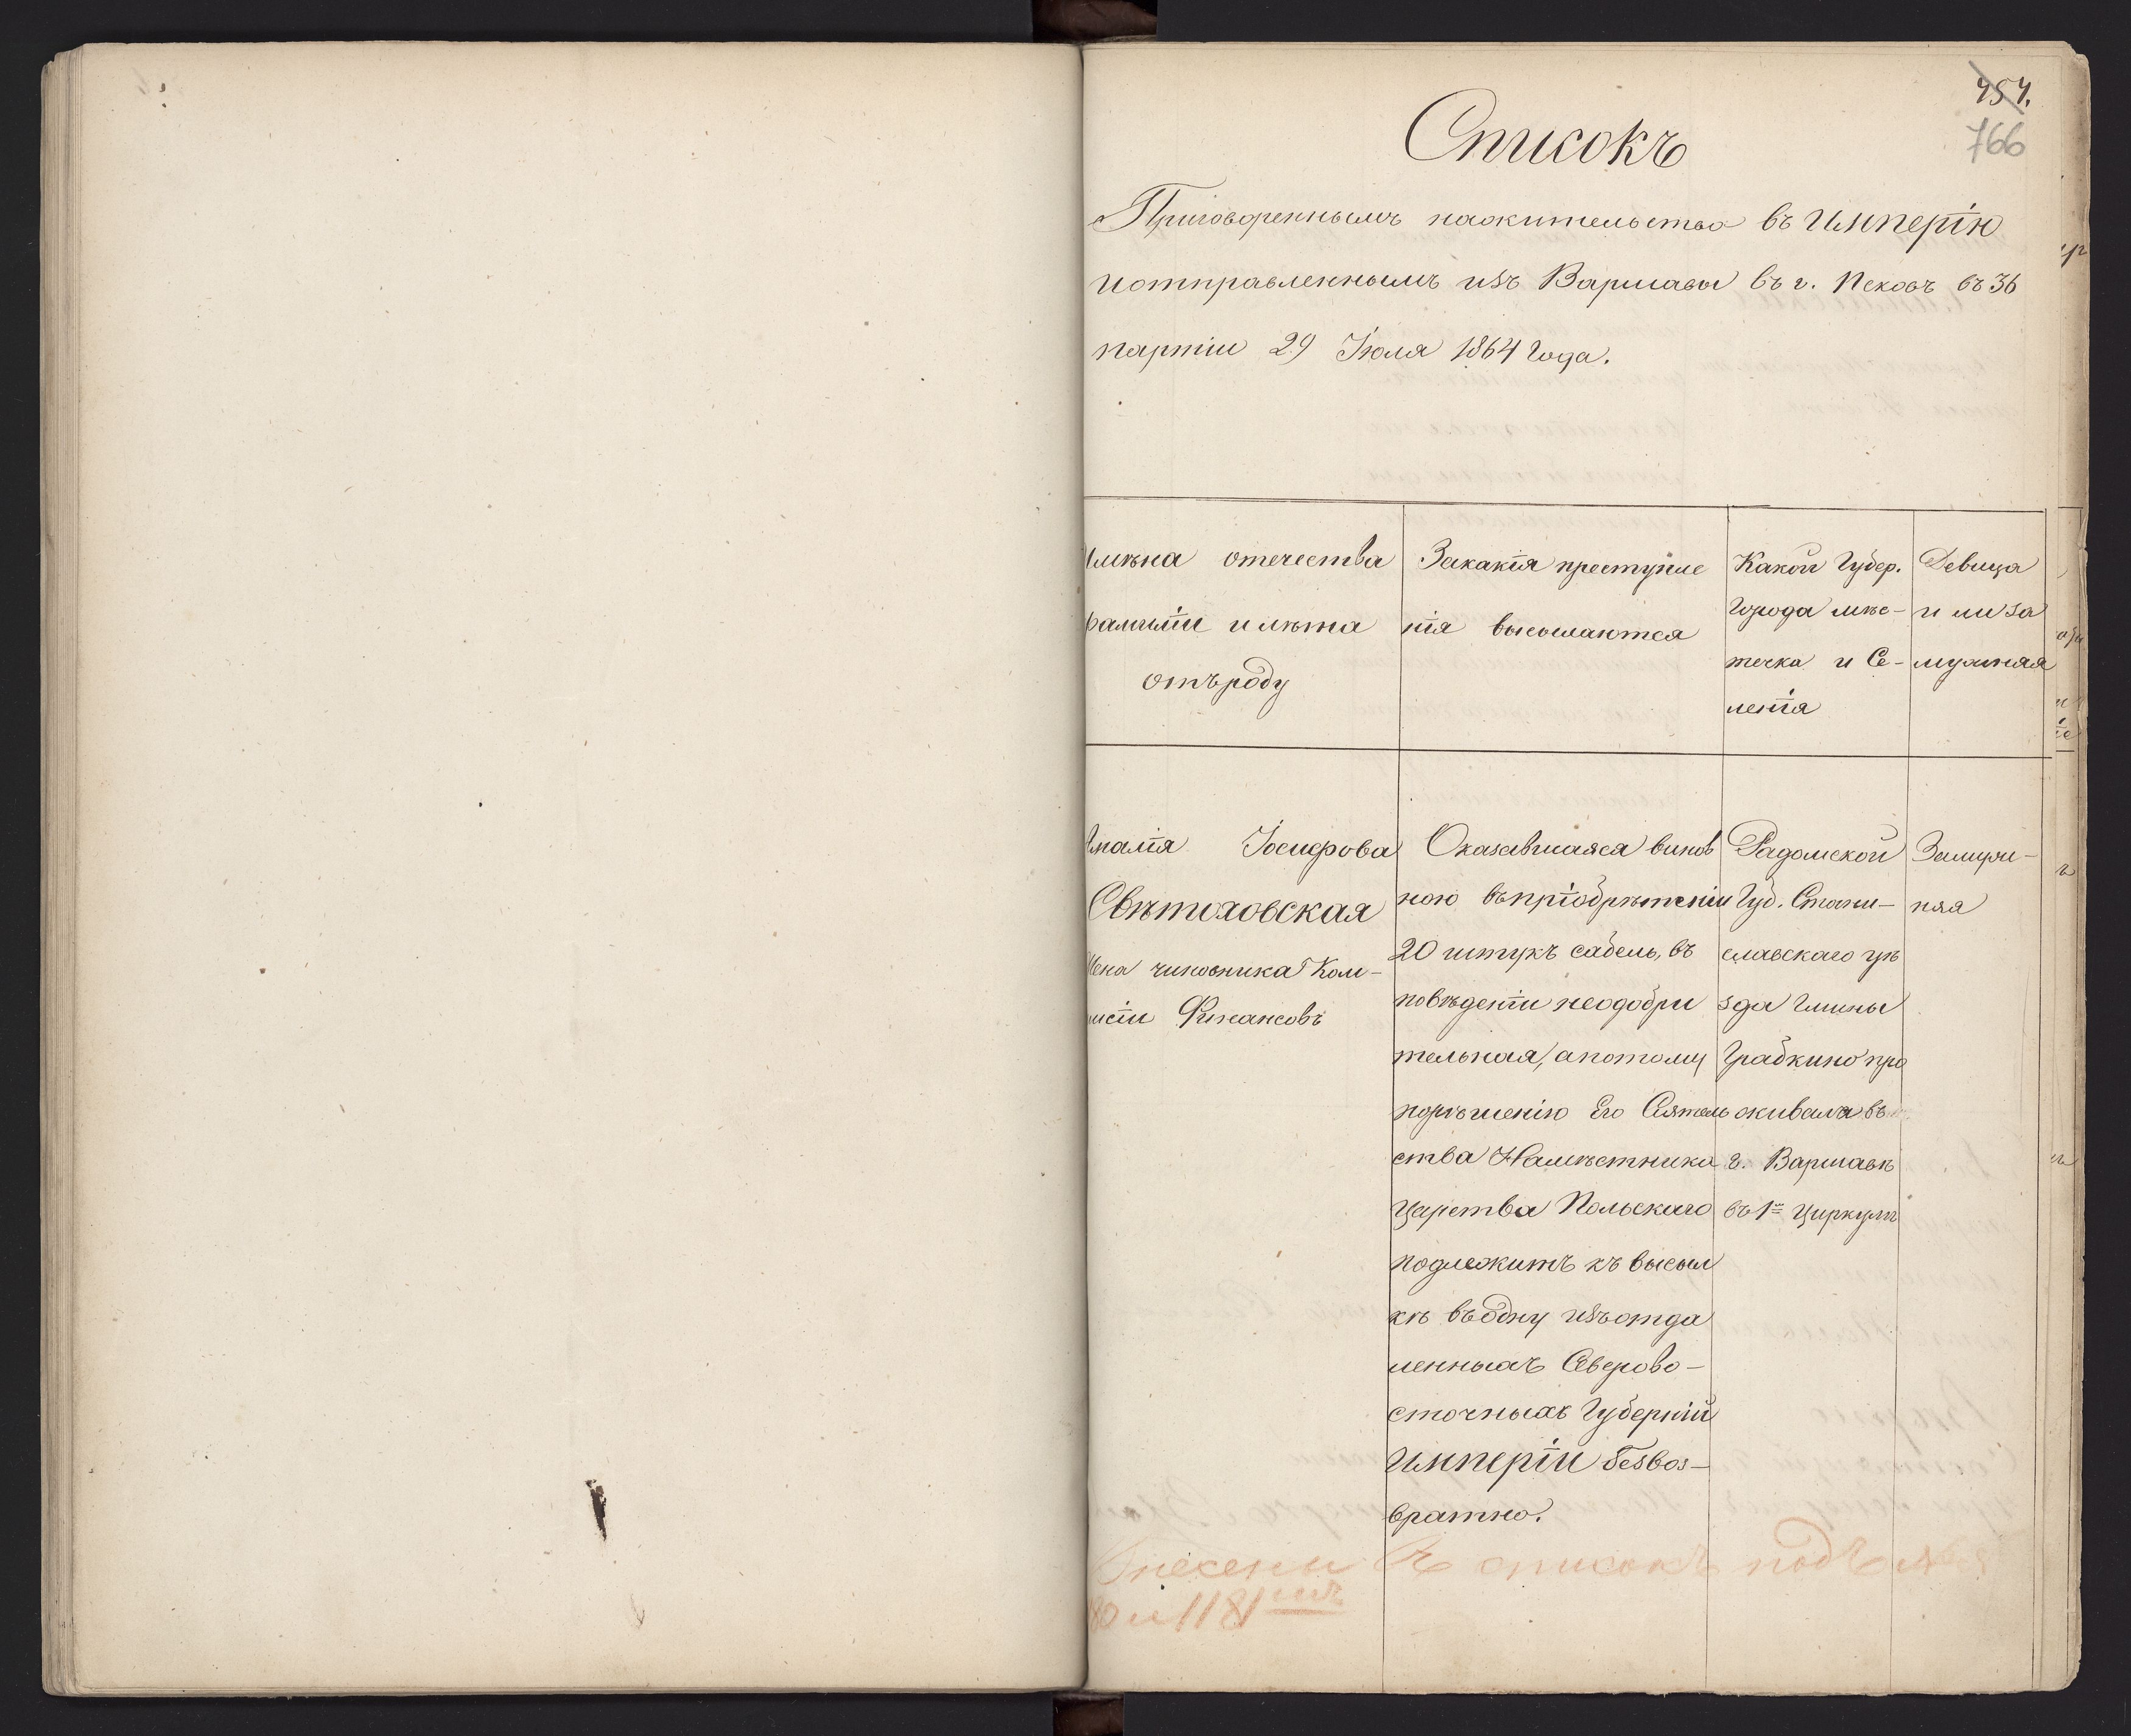 454.
766
Списокъ
Приговореннымъ нажительство въ Имперію
иотправленнымъ изъ Варшавы въ г. Псковъ въ 36
партіи 29 Іюля 1864 Года.
Имѣна отечества
фамиліи и лѣта
отъ роду
Закакія преступле
нія высылаются
Какой Губер.
Города мѣс-
течка и Се-
ленія
Девица
или за
мужняя
малія Іосифова
Свѣтоховская
Жена чиновника Ком-
мисіи Финансовъ
Оказавшаяся винов
ною въ пріобрѣтеніи
20 штукъ сабель, въ
повѣденіи неодобри
тельная, апотому
порѣшенію Его Сіятель
ства Намѣстника
Царства Польскаго
подлежитъ къ высыл
кѣ въ одну изъ отда
ленныхъ Северово-
сточныхъ Губерній
Имперіи безвоз-
вратно.
Радомской
Губ. Стани-
славскаго уѣ
зда Гмины
Грабкино про
живала въ
г. Варшавѣ
въ 1мъ Циркулѣ
Замуж-
няя
Внесены въ списокъ подъ №
80 и 1181мъ